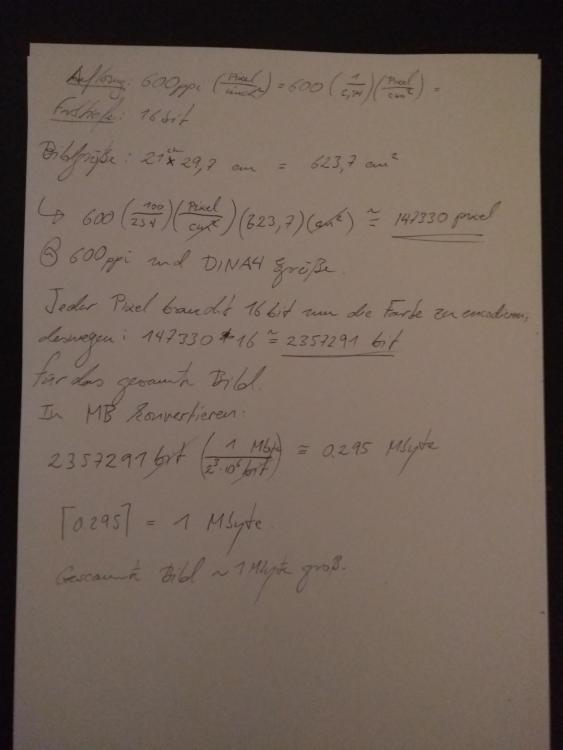 Auflösung: 600ppi (Pixel/inch²) = 600 (1/2,54)(Pixel/cm²) =
Farbtiefe: 16 bit
Bildgröße: 21 cm × 29,7 cm = 623,7 cm²
↳ 600 (100/254)(Pixel/cm²)(623,7)(cm²) ≅ 147330 pixel
@ 600ppi und DINA4 größe.
Jeder Pixel braucht 16 bit um die Farbe zu encodieren,
deswegen: 147330 * 16 ≅ 2357291 bit
für das gesamte Bild.
In MB konvertieren:
2357291 bit (1 Mbyte/2³·10⁶ bit) ≅ 0.295 Mbyte
⌈0.295⌉ = 1 Mbyte.
Gescannte Bild ~ 1 Mbyte groß.